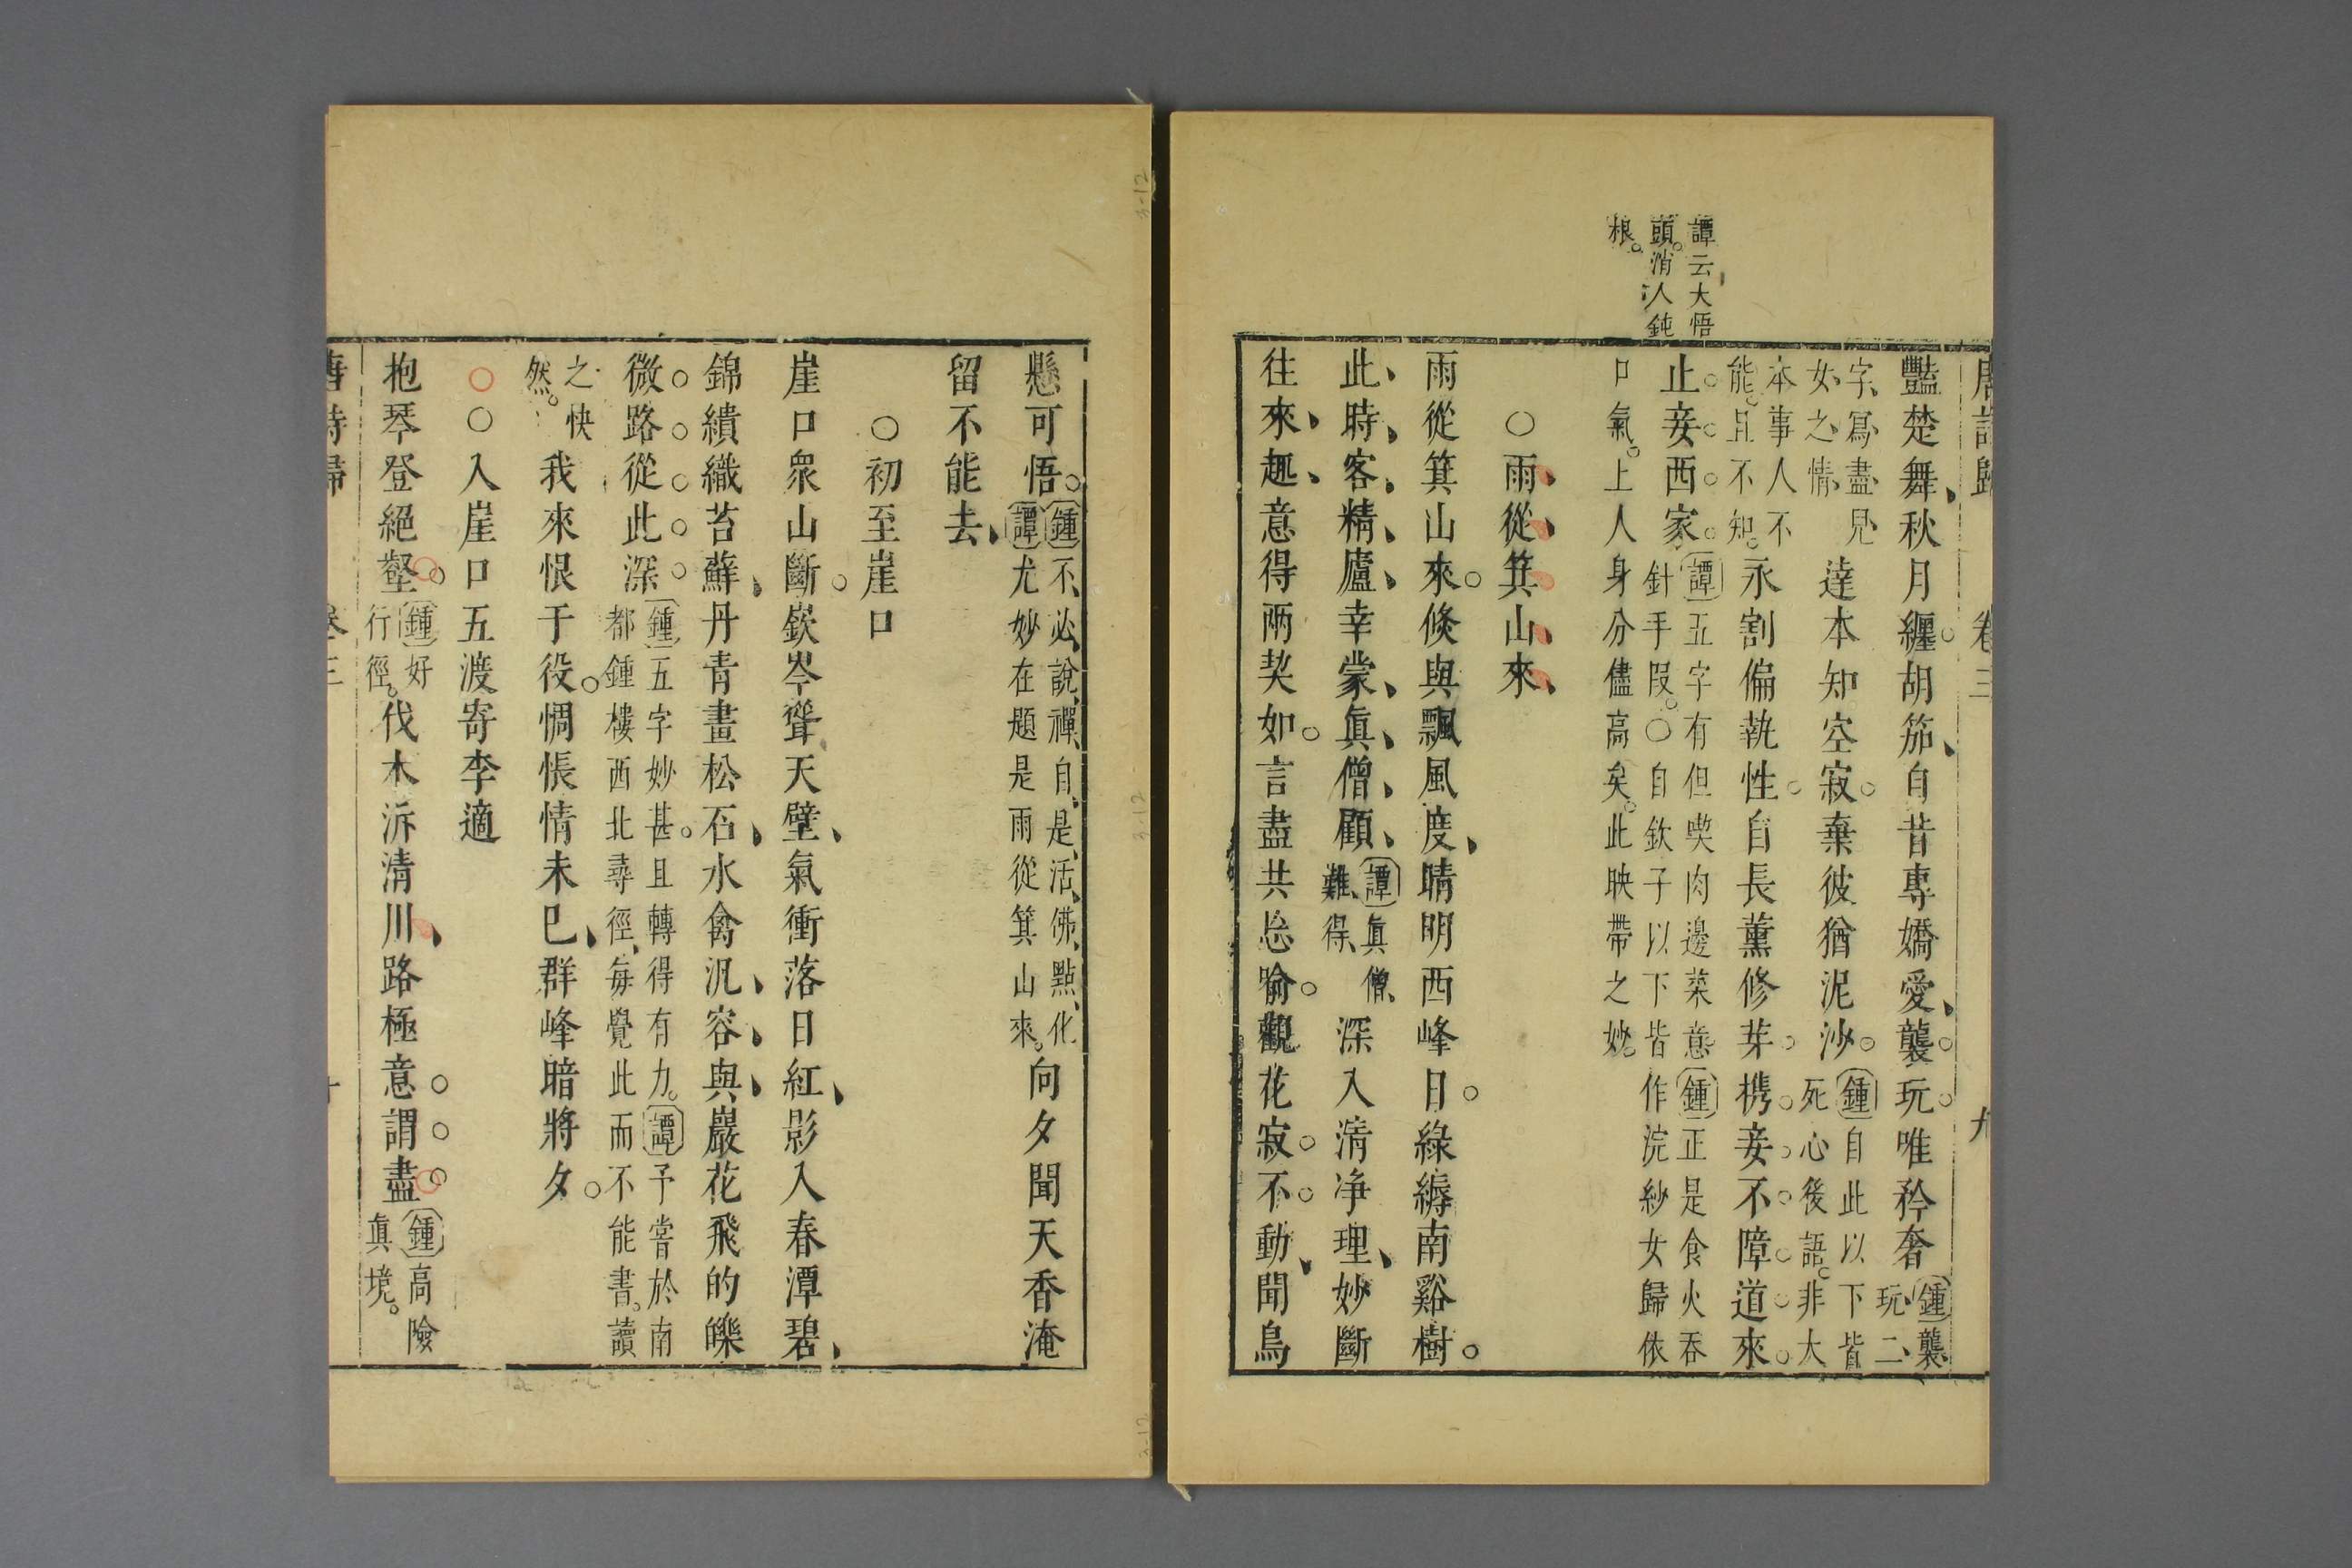 唐詩歸 卷三 九
豔楚舞秋月纏胡笳自昔專嬌愛襲玩唯矜奢鍾襲玩二
字寫盡兒女之情達本知空寂棄彼猶泥沙鍾自此以下皆死心後語非大
本事人不能且不知永割偏執性自長薰修芽携妾不障道來
止妾西家譚五字有但喫肉邊菜意鍾正是食火吞針手叚○自欽子以下皆作浣紗女歸依
口氣上人身分儘高矣此映帶之妙
譚云大悟
頭消人鈍
根
○雨從箕山來
雨從箕山來倐與飄風度晴明西峰日綠縟南谿樹
此時客精廬幸蒙眞僧顧譚眞僧難得深入清淨理妙斷
往來趣意得兩契如言盡共忘喻觀花寂不動聞鳥
懸可悟鍾不必說禪自是活佛點化譚尤妙在題是雨從箕山來向夕聞天香淹
留不能去
○初至崖口
崖口衆山斷嶔岑聳天壁氣衝落日紅影入春潭碧
錦繢織苔蘚丹青畫松石水禽汎容與巖花飛的皪
微路從此深鍾五字妙甚且轉得有力譚予嘗於南都鍾樓西北尋徑每覺此而不能書讀
之快然我來恨于役惆悵情未已群峰暗將夕
○入崖口五渡寄李適
抱琴登絕壑鍾好行徑伐木泝清川路極意謂盡鍾高險眞境
唐詩歸 卷三 十